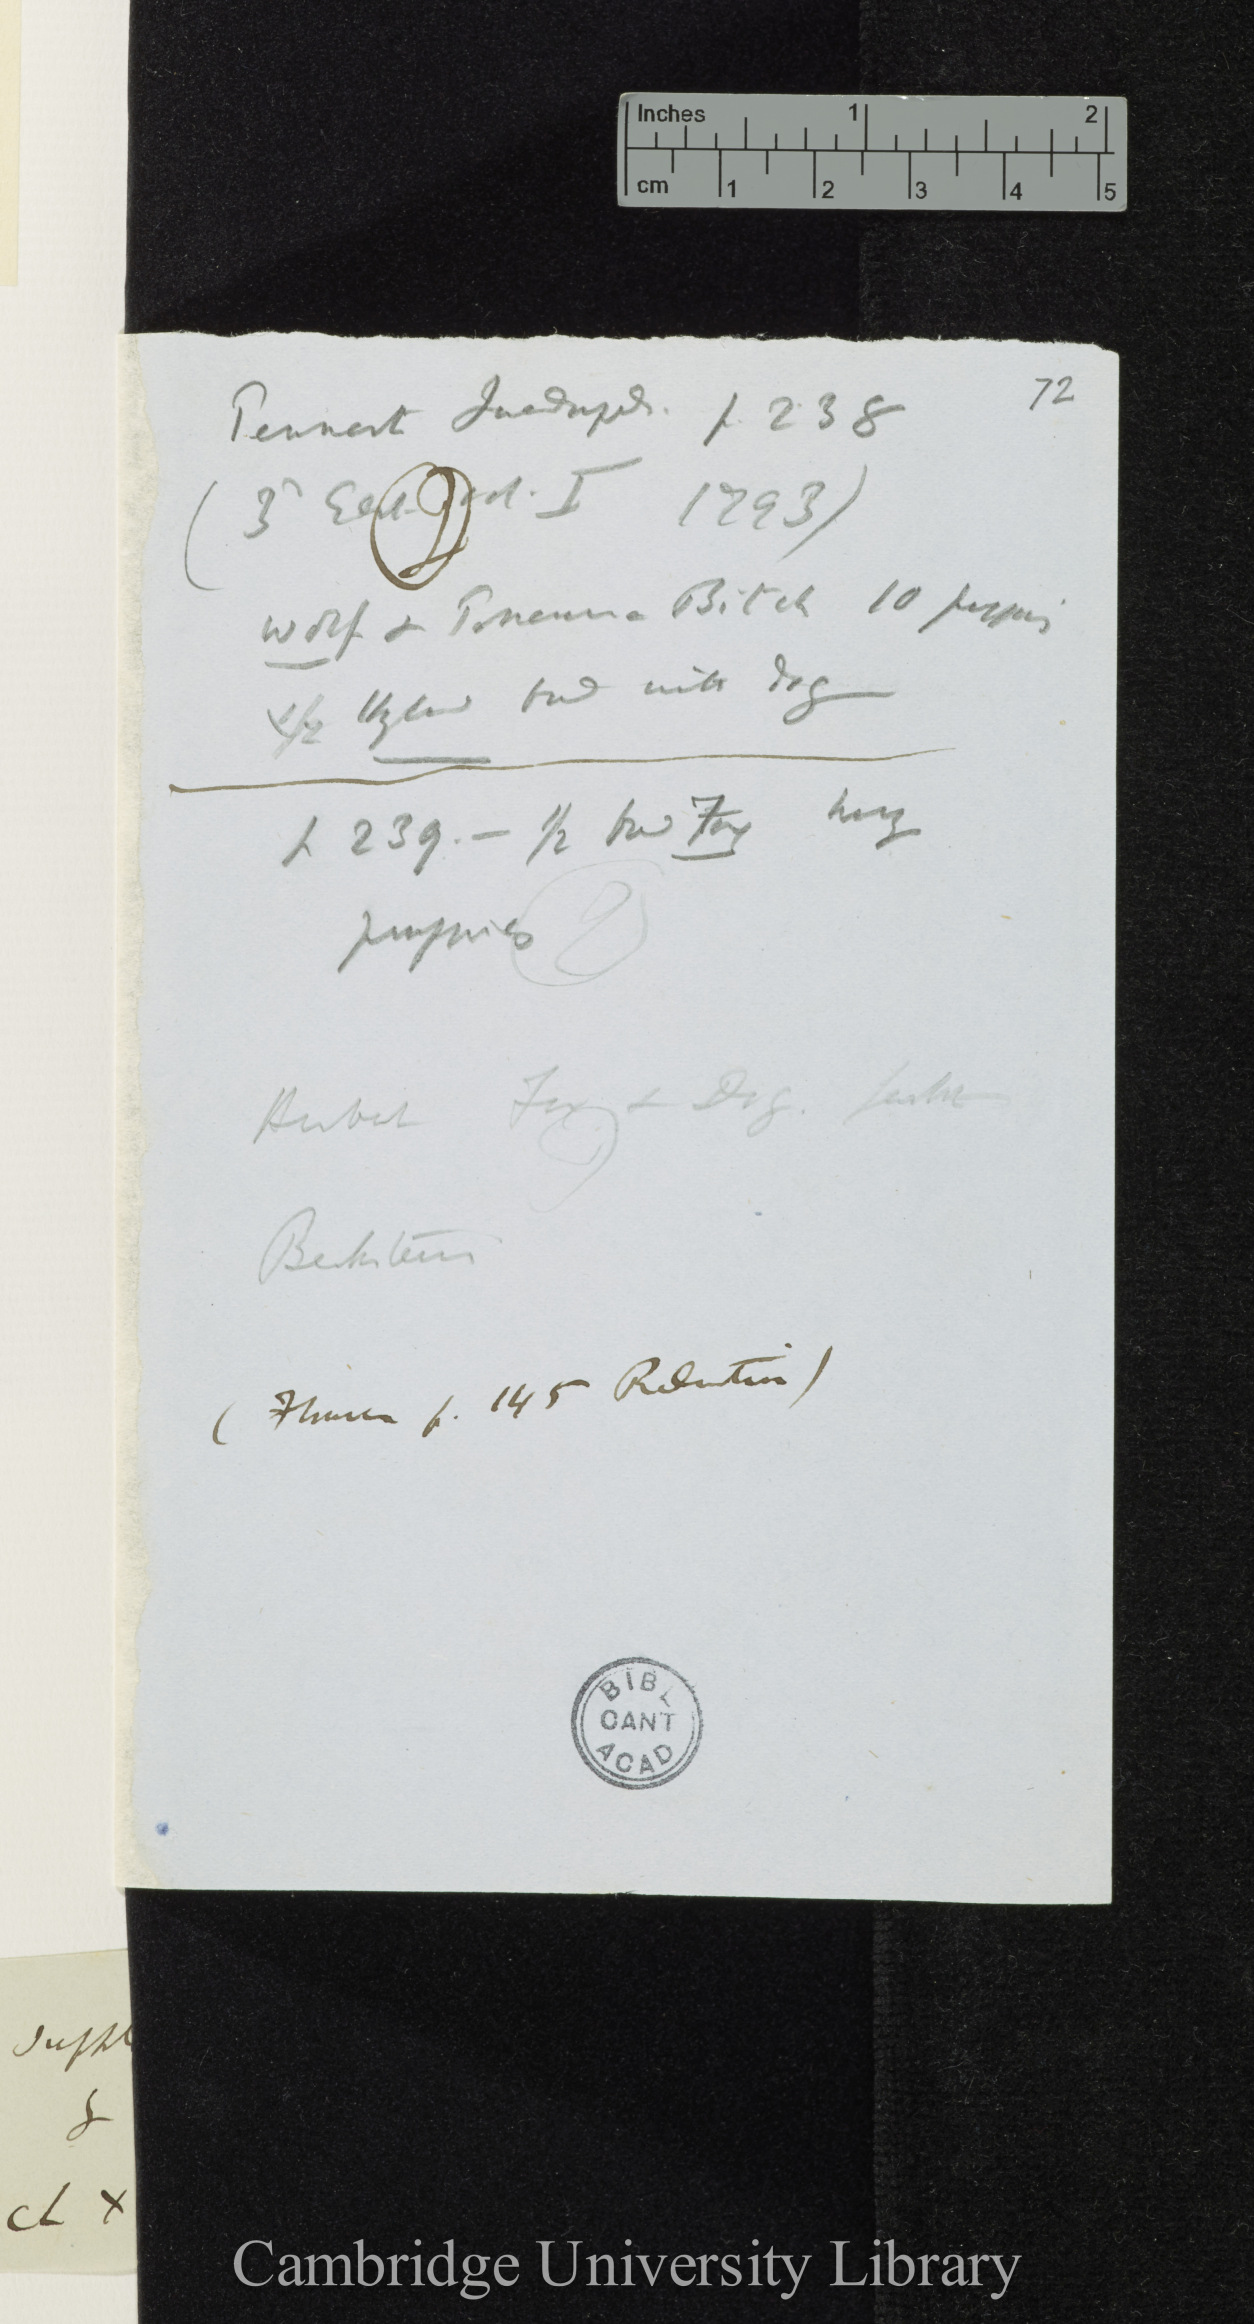 Inches 1 2
cm 1 2 3 4 5
72
Pennant Quadrupeds. p. 238
(3d Edit. vol. I 1793)
9
Wolf & Pomeranian Bitch 10 puppies
1/2 bred with dog
p 239. — 1/2 bred Fox
puppies 9
Herbert Fox & Dog.
Bechstein
( p. 145 )
BIBL
CANT
ACAD
Suppl
&
ch X
Cambridge University Library